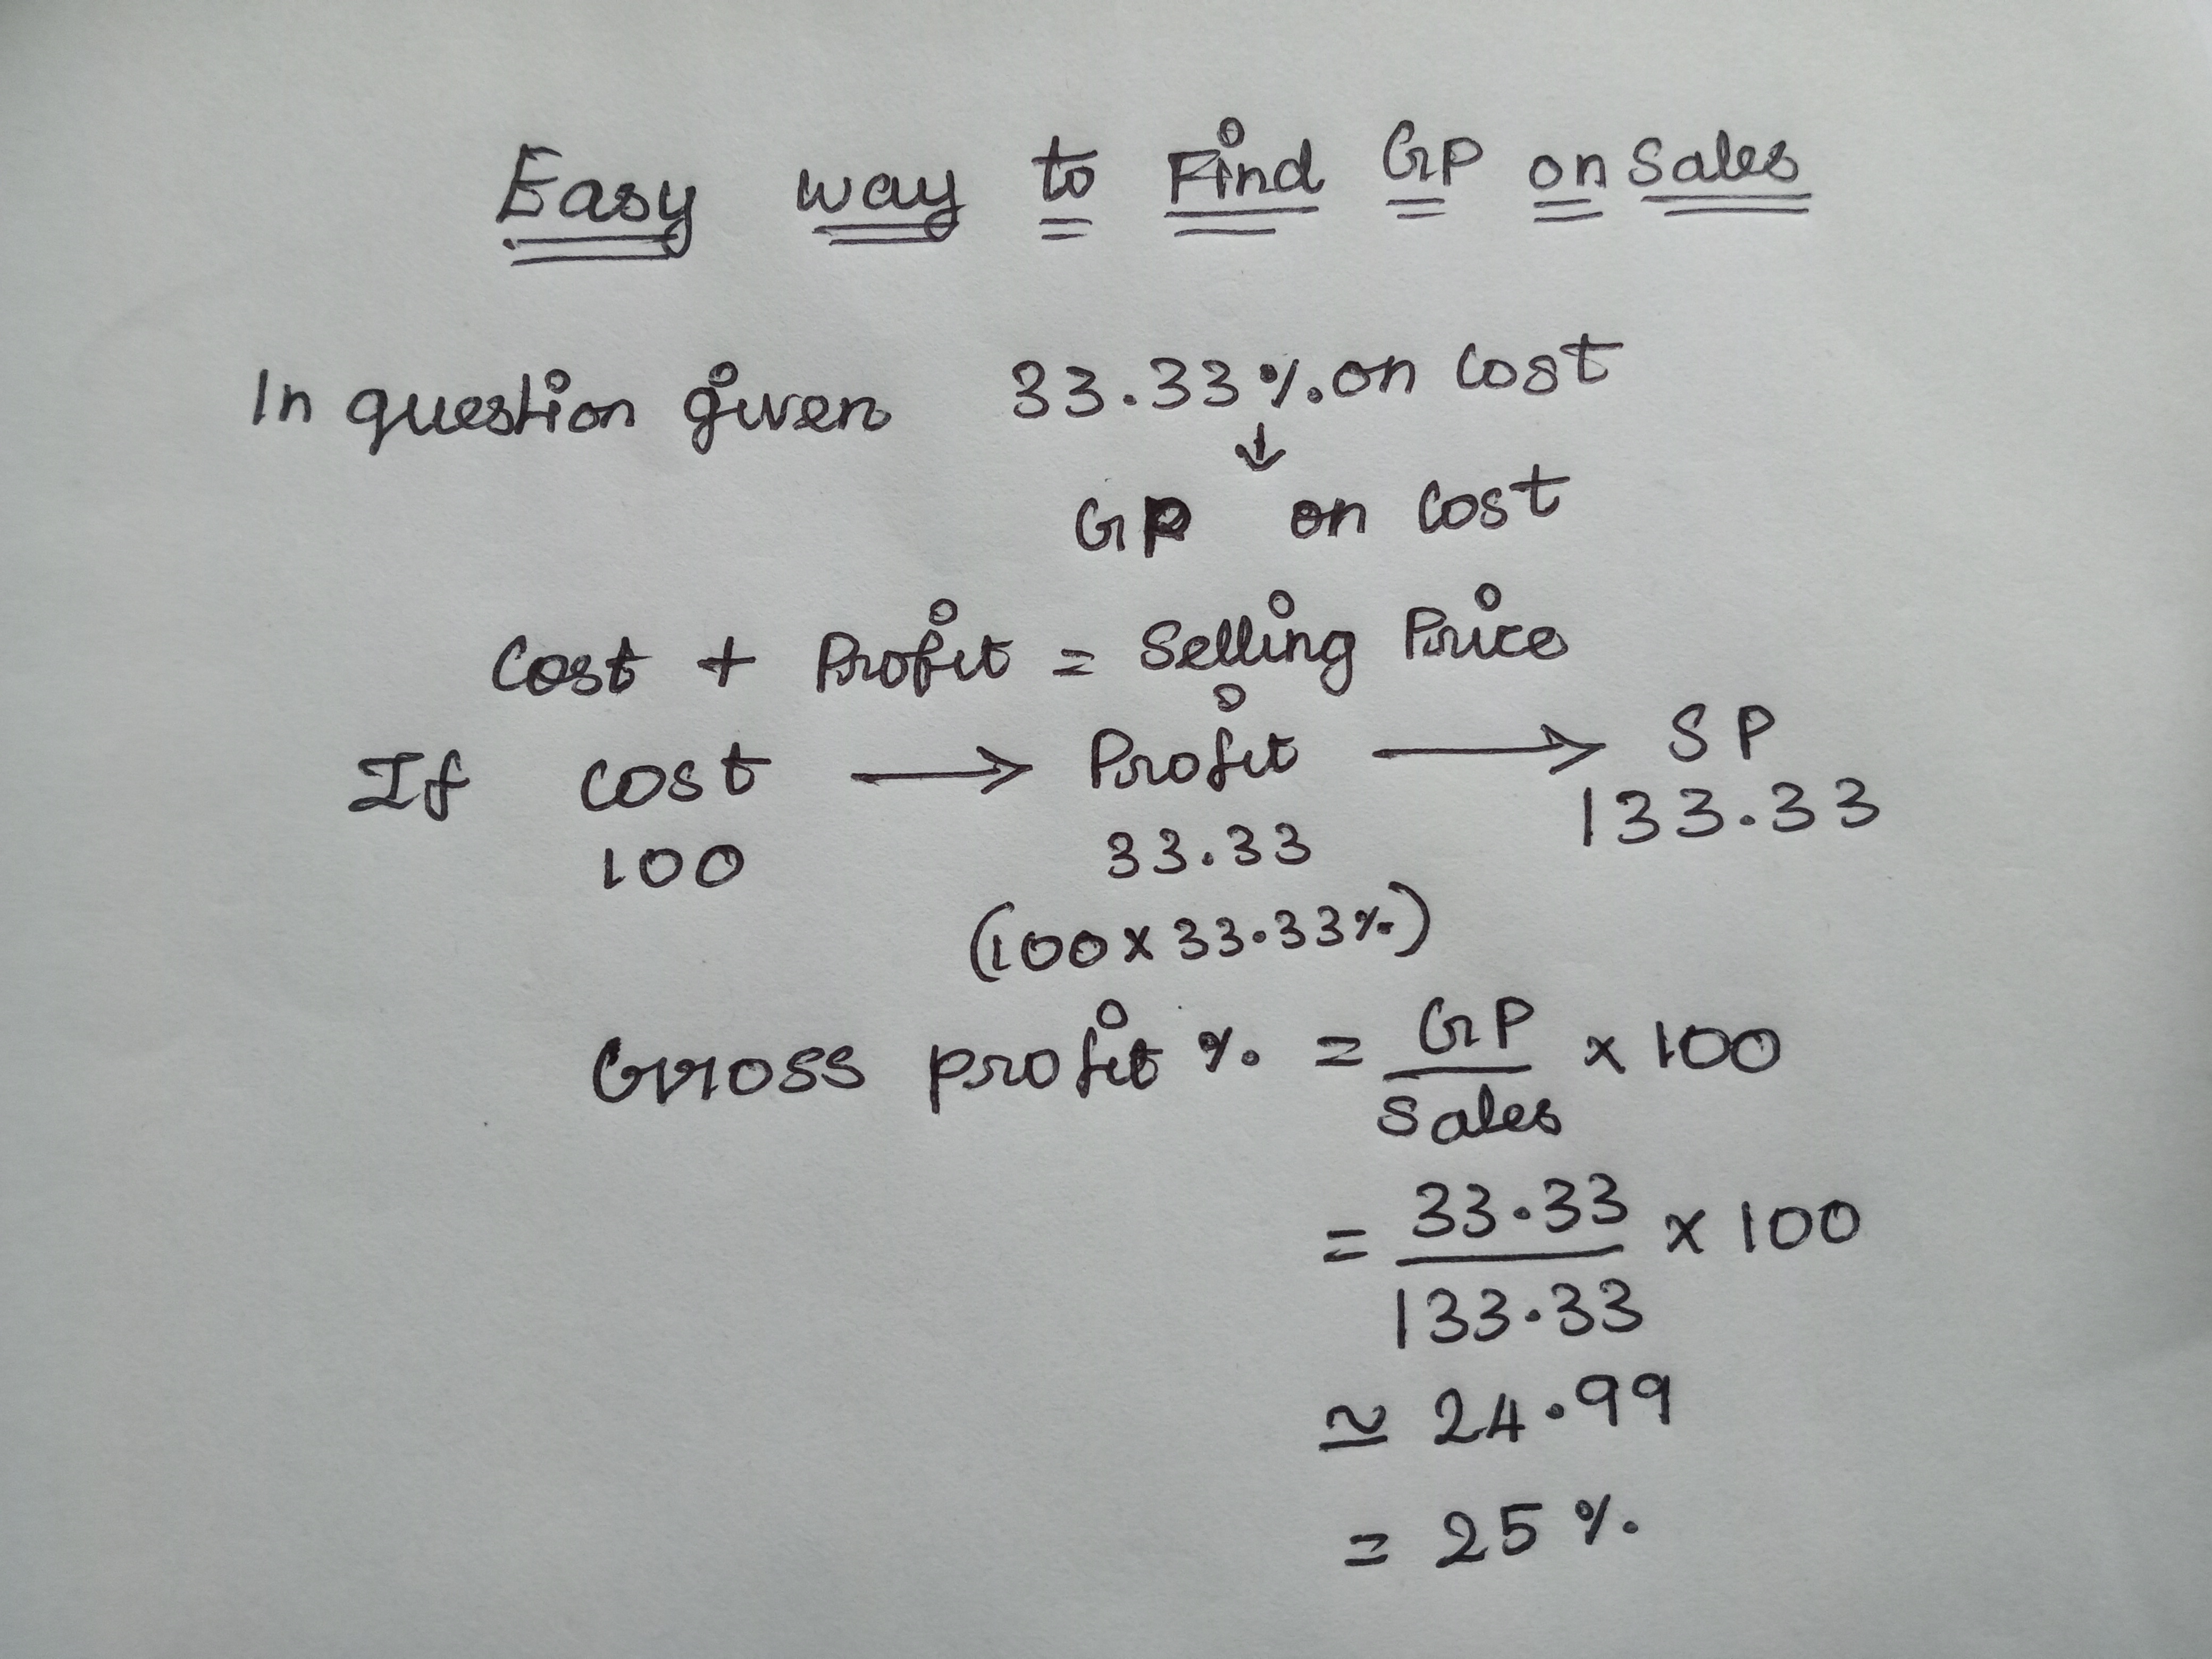 Easy way to Find GP on Sales
In question given 33.33% on cost
↓
GP on cost
Cost + Profit = Selling Price
If cost → Profit → SP
100 33.33 133.33
(100 x 33.33%)
Gross profit % = GP/Sales x 100
= 33.33/133.33 x 100
≃ 24.99
= 25%